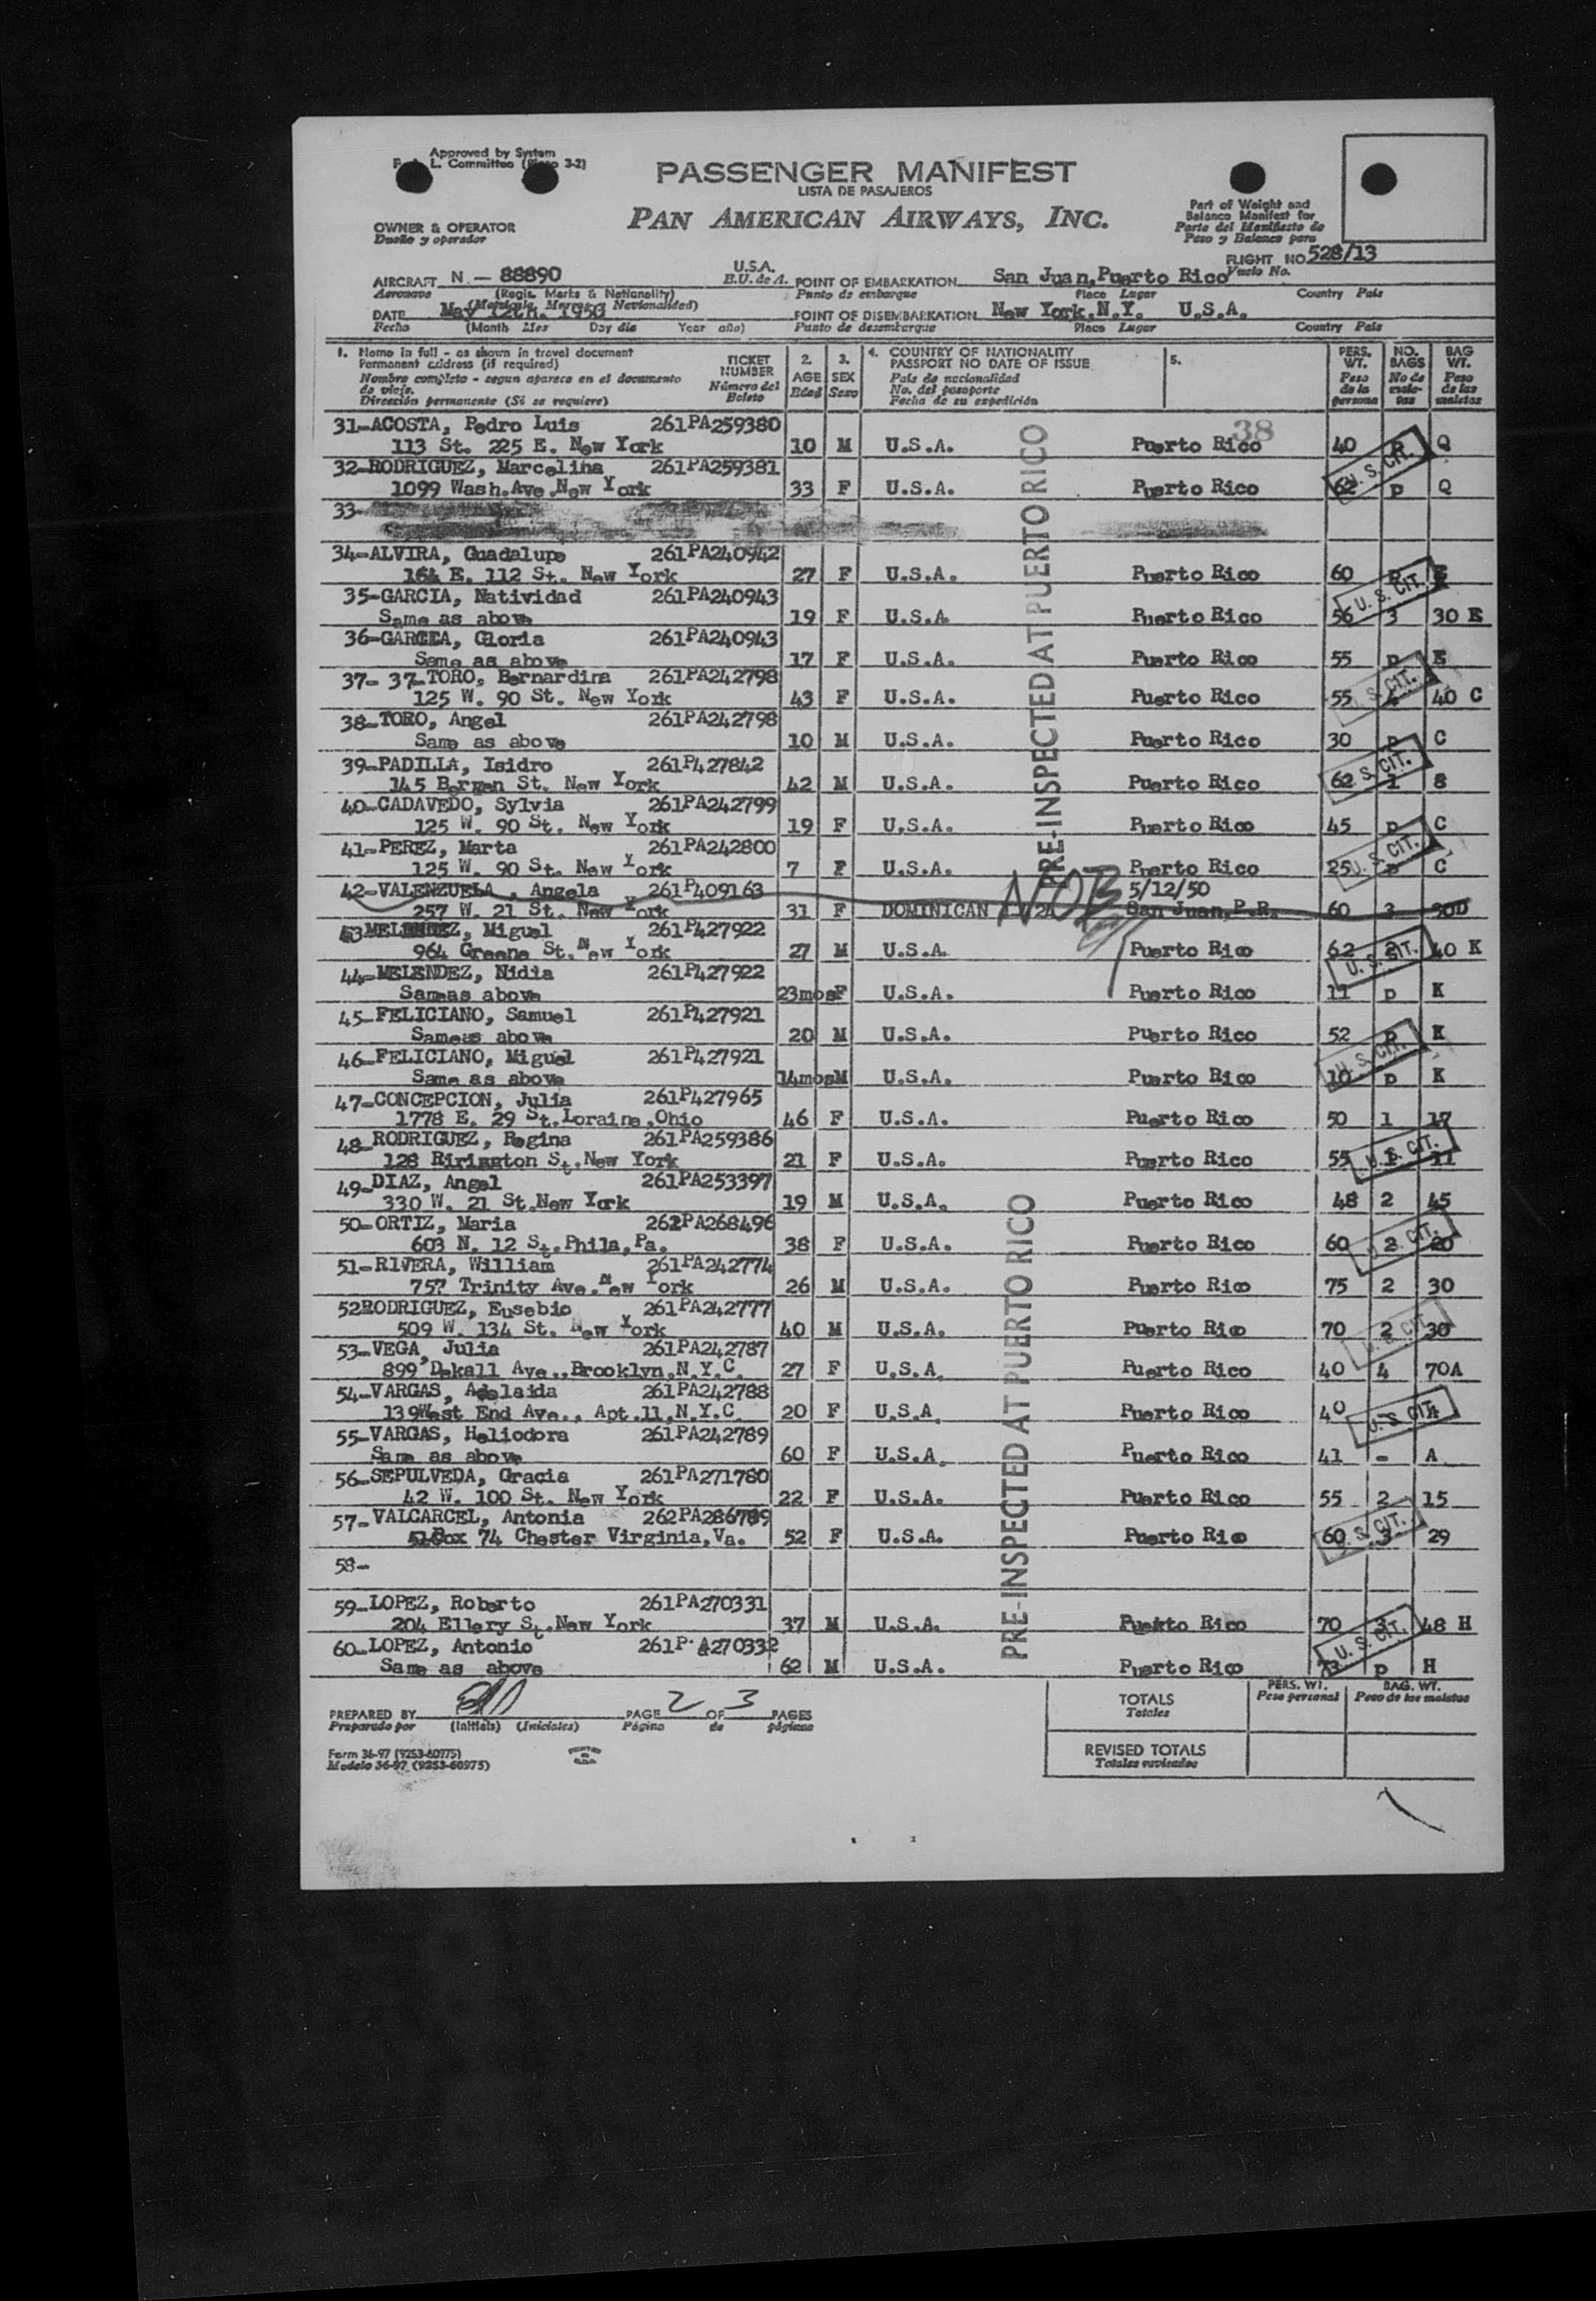 Approved by System
L. Committee 3-2)
PASSENGER MANIFEST
LISTA DE PASAJEROS
PAN AMERICAN AIRWAYS, INC.
Part of Weight and
Balance Manifest for
Parte del Manifiesto de
Peso y Balance para
OWNER & OPERATOR
Dueño y operador
FLIGHT NO. 528/13
Vuelo No.
AIRCRAFT N - 88890 U.S.A. POINT OF EMBARKATION San Juan, Puerto Rico
Aeronave (Regis. Marks & Nationality) E.U. de A. Punto de embarque Place Lugar Country País
(Matrícula, Marcas Nacionalidad)
DATE May 12th. 1950 POINT OF DISEMBARKATION New York, N.Y. U.S.A.
Fecha (Month Mes Day día Year año) Punto de desembarque Place Lugar Country País
1. Name in full - as shown in travel document
Permanent address (if required)
Nombre completo - segun aparece en el documento
de viaje.
Dirección permanente (Si se requiere)
TICKET
NUMBER
Número del
Boleto
2.
AGE
Edad
3.
SEX
Sexo
4. COUNTRY OF NATIONALITY
PASSPORT NO DATE OF ISSUE
País de nacionalidad
No. del pasaporte
Fecha de su expedición
5.
PERS.
WT.
Peso
de la
persona
NO.
BAGS
No de
male-
tas
BAG
WT.
Peso
de las
maletas
38
31-ACOSTA, Pedro Luis 261PA259380
113 St. 225 E. New York 10 M U.S.A. Puerto Rico 40 Q
32-RODRIGUEZ, Marcelina 261PA259381
1099 Wash.Ave.New York 33 F U.S.A. Puerto Rico p Q
33-
34-ALVIRA, Guadalupe 261PA240942
164 E. 112 St. New York 27 F U.S.A. Puerto Rico 60
35-GARCIA, Natividad 261PA240943
Same as above 19 F U.S.A. Puerto Rico 56 3 30 E
36-GARCIA, Gloria 261PA240943
Same as above 17 F U.S.A. Puerto Rico 55 p E
37- 37-TORO, Bernardina 261PA242798
125 W. 90 St. New York 43 F U.S.A. Puerto Rico 55 40 C
38-TORO, Angel 261PA242798
Same as above 10 M U.S.A. Puerto Rico 30 p C
39-PADILLA, Isidro 261P427842
145 Bergen St. New York 42 M U.S.A. Puerto Rico 62 1 8
40-CADAVEDO, Sylvia 261PA242799
125 W. 90 St. New York 19 F U.S.A. Puerto Rico 45 p C
41-PEREZ, Marta 261PA242800
125 W. 90 St. New York 7 F U.S.A. Puerto Rico 25 p C
42-VALENZUELA, Angela 261P409163 NOB 5/12/50
257 W. 21 St. New York 31 F DOMINICAN San Juan, P.R. 60 3 30D
43MELENDEZ, Miguel 261P427922
964 Greene St. New York 27 M U.S.A. Puerto Rico 62 2 40 K
44-MELENDEZ, Nidia 261P427922
Sameas above 23mosF U.S.A. Puerto Rico 11 p K
45-FELICIANO, Samuel 261P427921
Sameas above 20 M U.S.A. Puerto Rico 52 p K
46-FELICIANO, Miguel 261P427921
Same as above 14mosM U.S.A. Puerto Rico 10 p K
47-CONCEPCION, Julia 261P427965
1778 E. 29 St.Loraine,Ohio 46 F U.S.A. Puerto Rico 50 1 17
48-RODRIGUEZ, Regina 261PA259386
128 Rirington St.New York 21 F U.S.A. Puerto Rico 55 1 11
49-DIAZ, Angel 261PA253397
330 W. 21 St.New York 19 M U.S.A. Puerto Rico 48 2 45
50-ORTIZ, Maria 262PA268496
603 N. 12 St.Phila,Pa. 38 F U.S.A. Puerto Rico 60 2 20
51-RIVERA, William 261PA242774
757 Trinity Ave.New York 26 M U.S.A. Puerto Rico 75 2 30
52RODRIGUEZ, Eusebio 261PA242777
509 W. 134 St. New York 40 M U.S.A. Puerto Rico 70 2 30
53-VEGA, Julia 261PA242787
899 Dekall Ave.,Brooklyn,N.Y.C. 27 F U.S.A. Puerto Rico 40 4 70A
54-VARGAS, Adelaida 261PA242788
139West End Ave., Apt.11,N.Y.C. 20 F U.S.A. Puerto Rico 40 - A
55-VARGAS, Heliodora 261PA242789
Same as above 60 F U.S.A. Puerto Rico 41 - A
56-SEPULVEDA, Gracia 261PA271780
42 W. 100 St. New York 22 F U.S.A. Puerto Rico 55 2 15
57-VALCARCEL, Antonia 262PA286789
Box 74 Chester Virginia,Va. 52 F U.S.A. Puerto Rico 60 3 29
58-
59-LOPEZ, Roberto 261PA270331
204 Ellery St.New York 37 M U.S.A. Puerto Rico 70 3 48 H
60-LOPEZ, Antonio 261P A270332
Same as above 62 M U.S.A. Puerto Rico 73 p H
PRE-INSPECTED AT PUERTO RICO
PRE-INSPECTED AT PUERTO RICO
U. S. CIT.
U. S. CIT.
U. S. CIT.
U. S. CIT.
U. S. CIT.
U. S. CIT.
U. S. CIT.
U. S. CIT.
U. S. CIT.
U. S. CIT.
U. S. CIT.
U. S. CIT.
U. S. CIT.
PREPARED BY PAGE 2 OF 3 PAGES
Preparado por (Initials) (Iniciales) Página de páginas
TOTALS
Totales
PERS. WT.
Peso personal
BAG. WT.
Peso de las maletas
REVISED TOTALS
Totales revisados
Form 36-97 (9253-60975)
Modelo 36-97 (9253-60975)